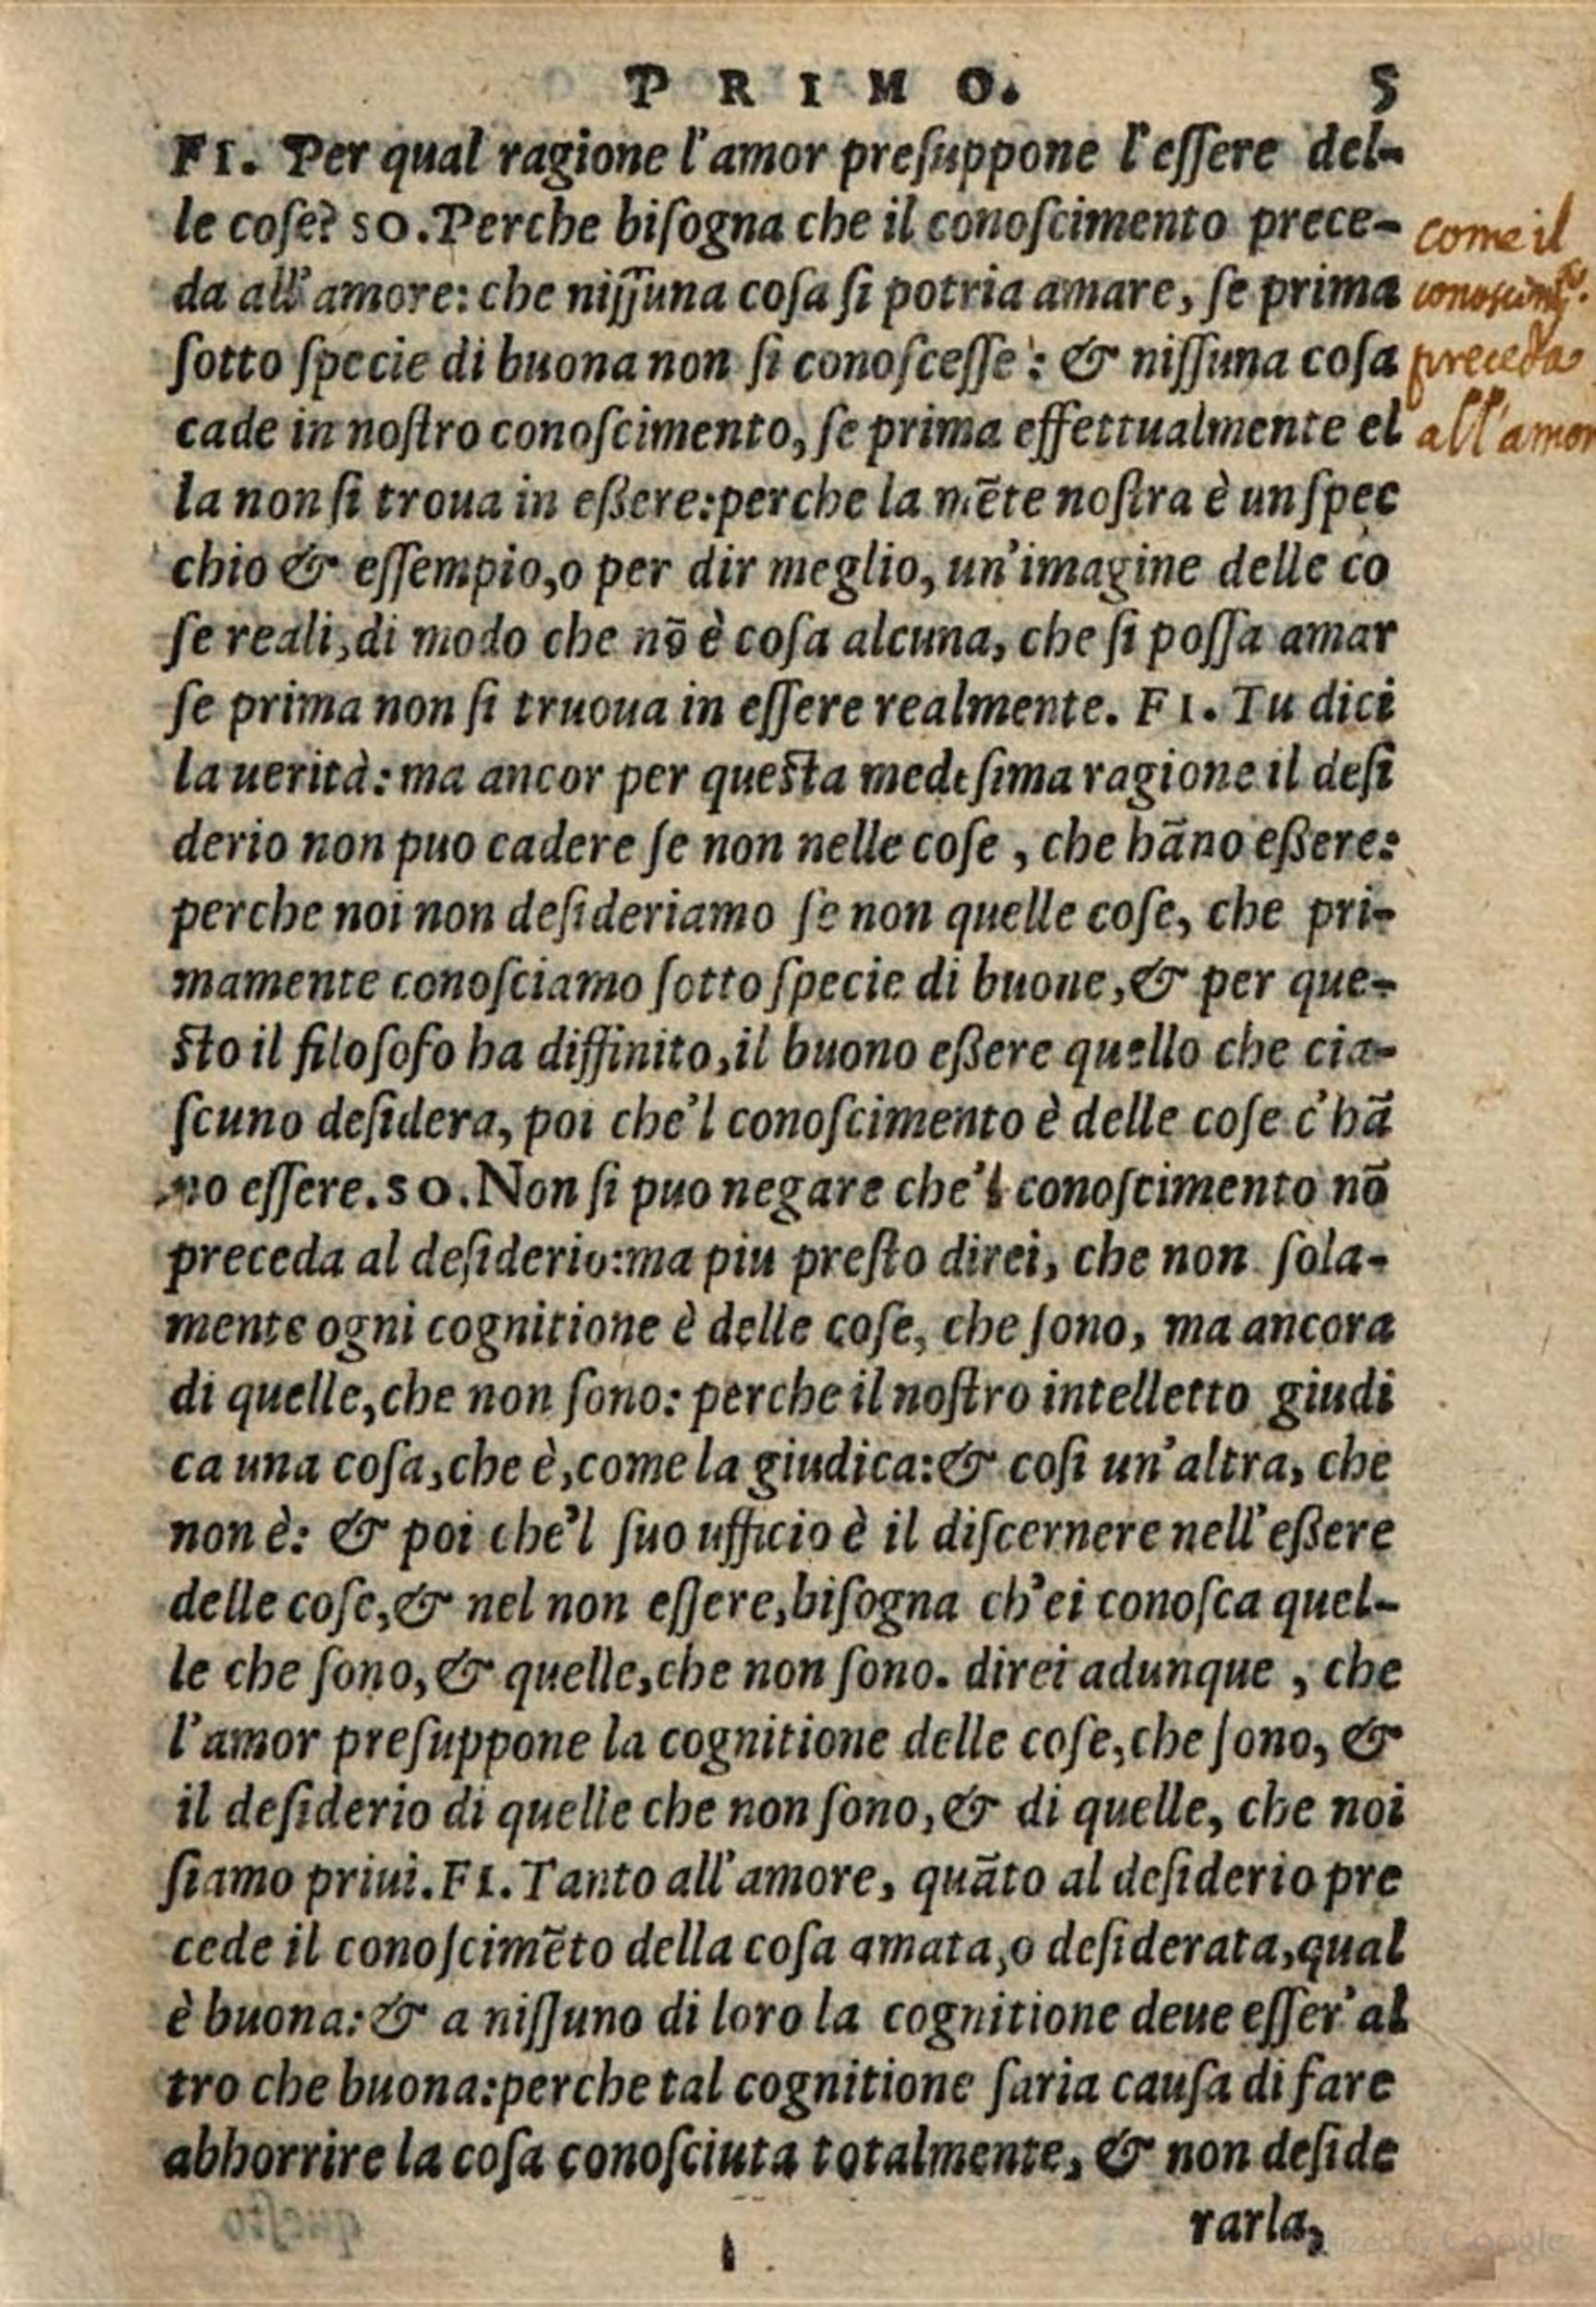 PRIMO. 5
FI. Per qual ragione l'amor preſuppone l'eſſere del-
le coſe? SO. Perche biſogna che il conoſcimento prece-
da all'amore: che niſſuna coſa ſi potria amare, ſe prima
ſotto ſpecie di buona non ſi conoſceſſe: & niſſuna coſa
cade in noſtro conoſcimento, ſe prima effettualmente el
la non ſi troua in eßere: perche la mēte noſtra è un ſpec
chio & eſſempio, o per dir meglio, un'imagine delle co
ſe reali, di modo che nō è coſa alcuna, che ſi poſſa amar
ſe prima non ſi truoua in eſſere realmente. FI. Tu dici
la uerità: ma ancor per queſta medeſima ragione il deſi
derio non puo cadere ſe non nelle coſe, che hāno eßere:
perche noi non deſideriamo ſe non quelle coſe, che pri-
mamente conoſciamo ſotto ſpecie di buone, & per que-
ſto il filoſofo ha diffinito, il buono eßere quello che cia-
ſcuno deſidera, poi che'l conoſcimento è delle coſe c'hā
no eſſere. SO. Non ſi puo negare che'l conoſcimento nō
preceda al deſiderio: ma piu preſto direi, che non ſola-
mente ogni cognitione è delle coſe, che ſono, ma ancora
di quelle, che non ſono: perche il noſtro intelletto giudi
ca una coſa, che è, come la giudica: & coſi un'altra, che
non è: & poi che'l ſuo ufficio è il diſcernere nell'eßere
delle coſe, & nel non eſſere, biſogna ch'ei conoſca quel-
le che ſono, & quelle, che non ſono. direi adunque, che
l'amor preſuppone la cognitione delle coſe, che ſono, &
il deſiderio di quelle che non ſono, & di quelle, che noi
ſiamo priui. FI. Tanto all'amore, quāto al deſiderio pre
cede il conoſcimēto della coſa amata, o deſiderata, qual
è buona: & a niſſuno di loro la cognitione deue eſſer'al
tro che buona: perche tal cognitione ſaria cauſa di fare
abhorrire la coſa conoſciuta totalmente, & non deſide
rarla,
come il
preceda
all'amor
Digitized by Google